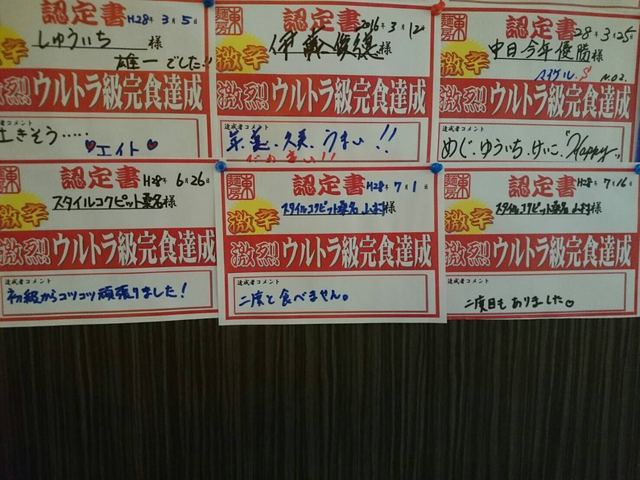 認定書 H28年3月5日
しゅういち 様
雄一でした!!
激辛
激烈!ウルトラ級完食達成
達成者コメント
エイト
東麺房
認定書 2016年3月12日
様
激辛
激烈!ウルトラ級完食達成
達成者コメント
うまい!!
東麺房
認定書 28年3月25日
中日今年優勝様
激辛
激烈!ウルトラ級完食達成
達成者コメント
めぐ.ゆういち.けいこ.
東麺房
認定書 H28年6月26日
スタイルコクピット桑名様
激辛
激烈!ウルトラ級完食達成
達成者コメント
初級からコツコツ頑張りました!
東麺房
認定書 H28年7月1日
スタイルコクピット桑名 様
激辛
激烈!ウルトラ級完食達成
達成者コメント
二度と食べません。
東麺房
認定書 H28年7月16日
スタイルコクピット桑名 様
激辛
激烈!ウルトラ級完食達成
達成者コメント
二度目もありました♡